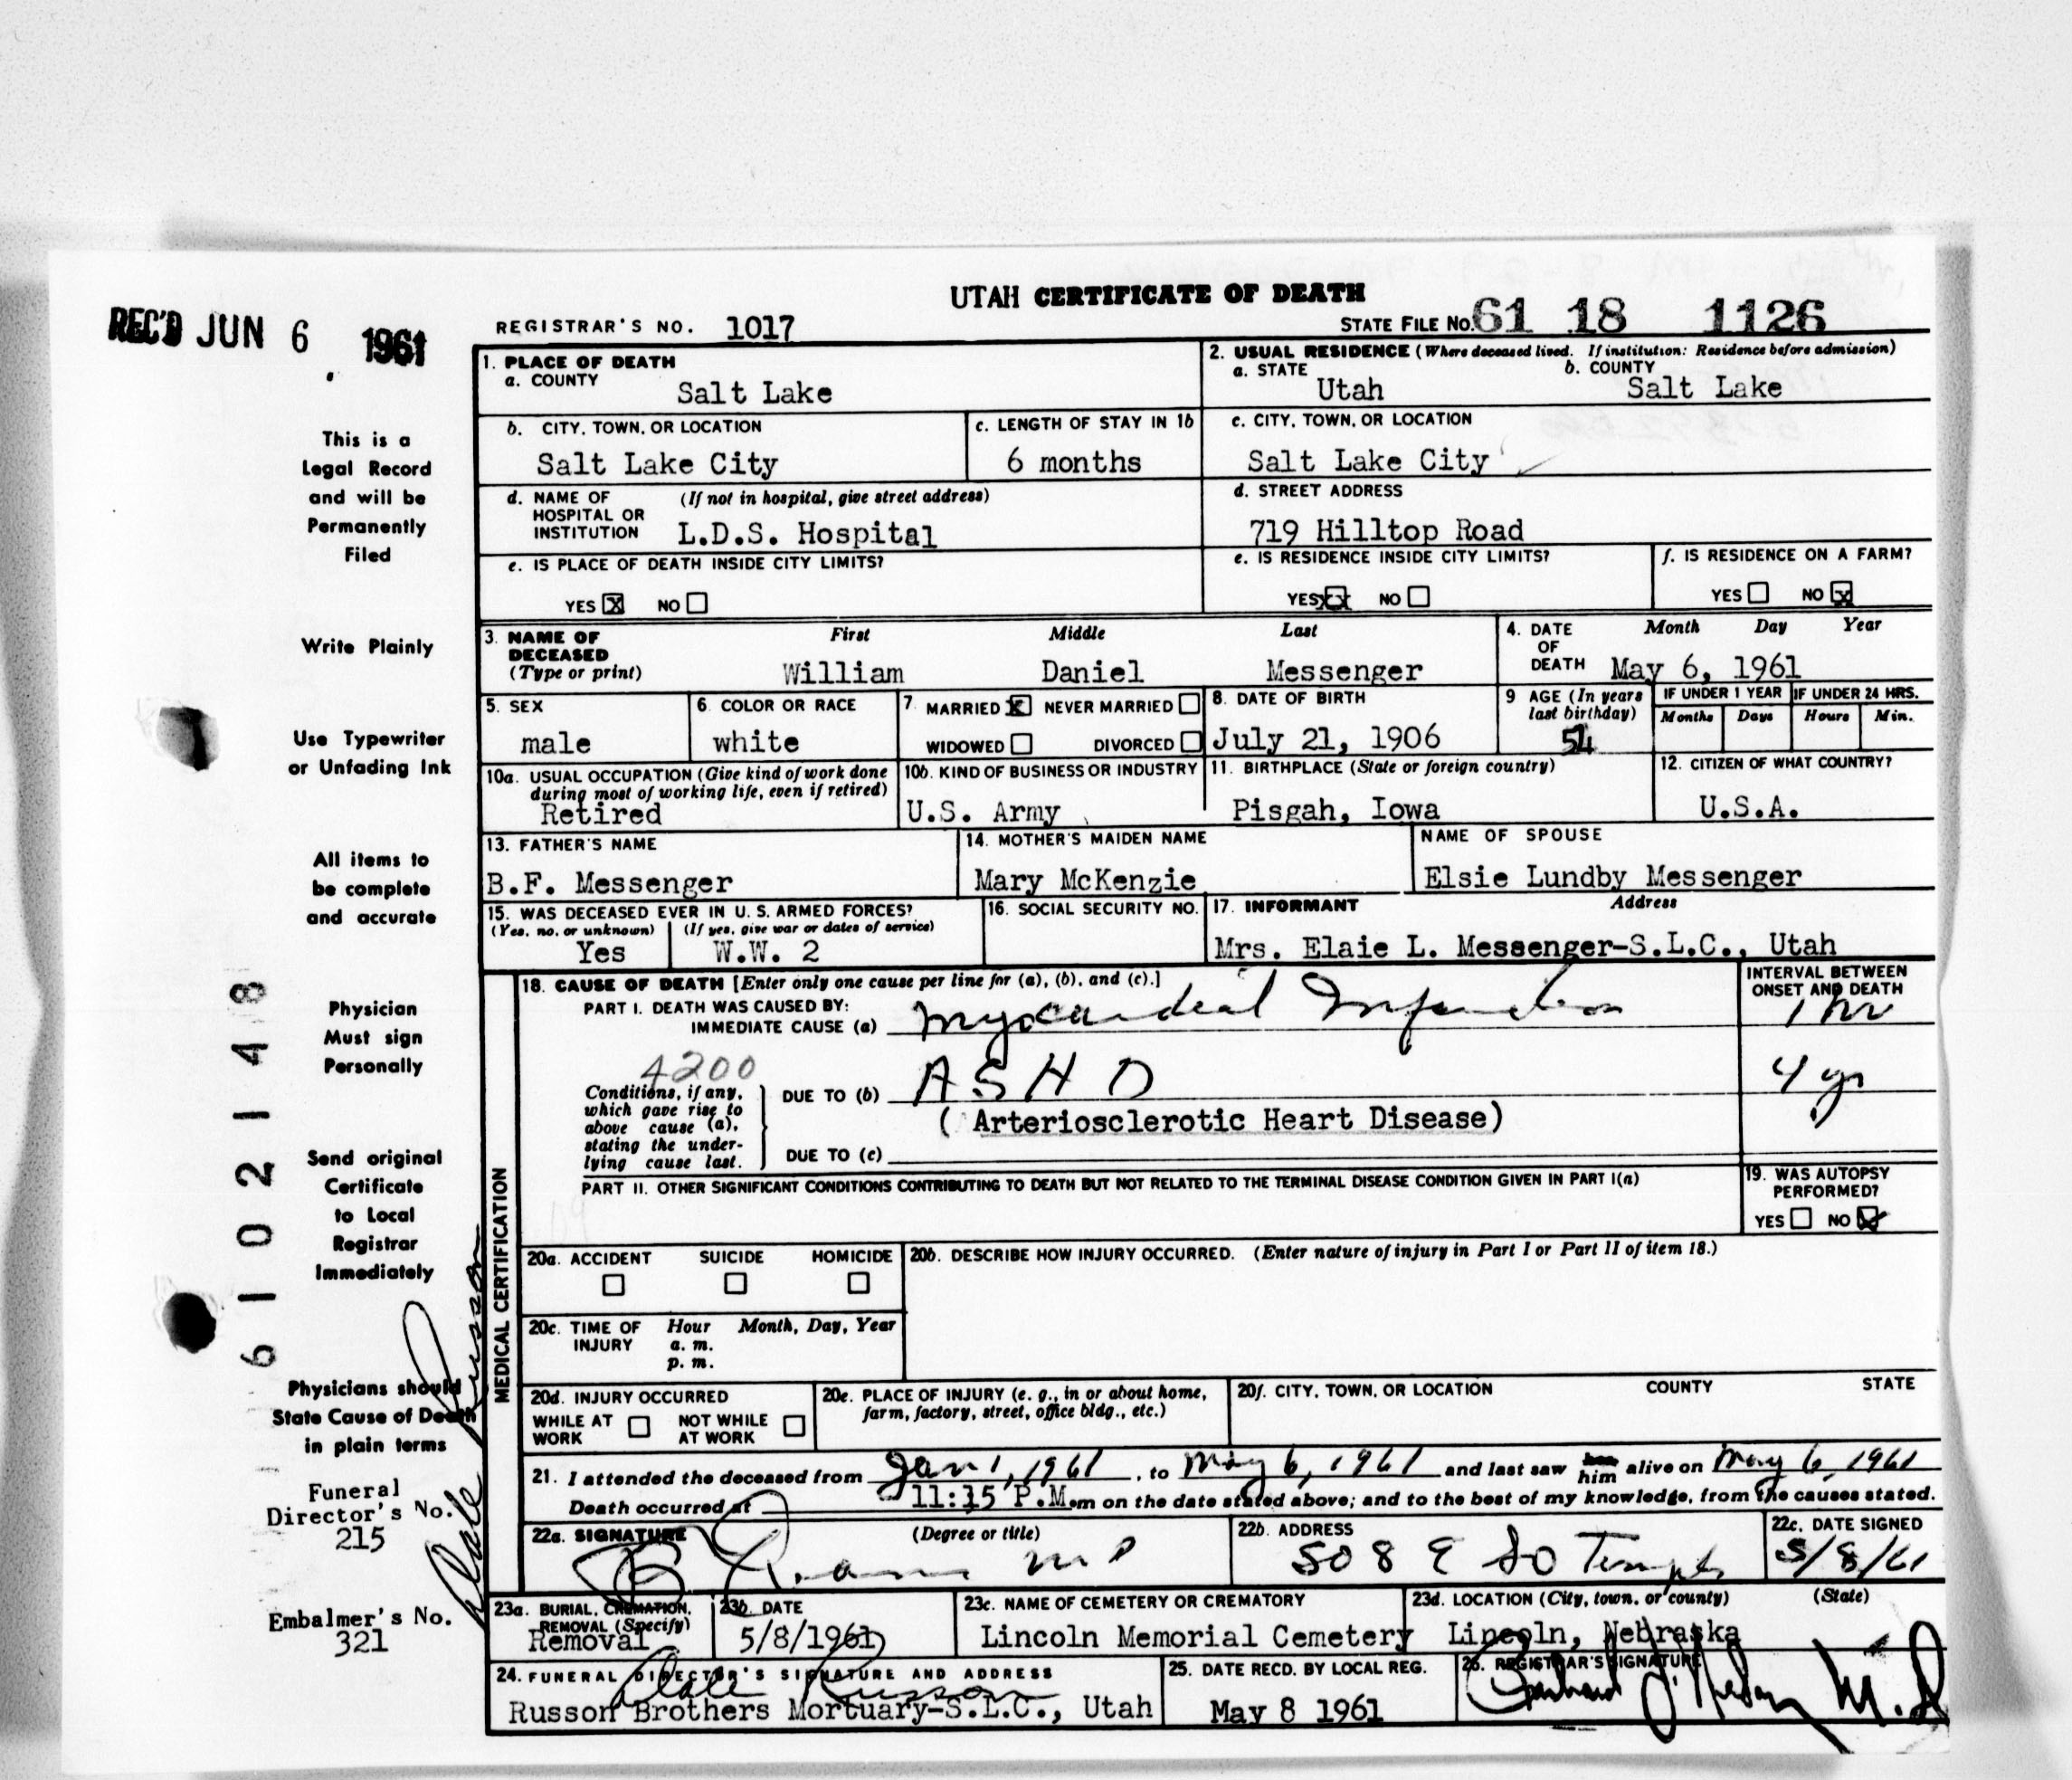 UTAH CERTIFICATE OF DEATH
REC'D JUN 6 1961
REGISTRAR'S NO. 1017
STATE FILE NO. 61 18 1126
1. PLACE OF DEATH
a. COUNTY
Salt Lake
2. USUAL RESIDENCE (Where deceased lived. If institution: Residence before admission)
a. STATE
Utah
b. COUNTY
Salt Lake
b. CITY, TOWN, OR LOCATION
Salt Lake City
c. LENGTH OF STAY IN 1b
6 months
c. CITY, TOWN, OR LOCATION
Salt Lake City
d. NAME OF HOSPITAL OR INSTITUTION
(If not in hospital, give street address)
L.D.S. Hospital
d. STREET ADDRESS
719 Hilltop Road
e. IS PLACE OF DEATH INSIDE CITY LIMITS?
YES X NO
e. IS RESIDENCE INSIDE CITY LIMITS?
YES XX NO
f. IS RESIDENCE ON A FARM?
YES NO X
3. NAME OF DECEASED (Type or print)
First Middle Last
William Daniel Messenger
4. DATE OF DEATH
Month Day Year
May 6, 1961
5. SEX
male
6. COLOR OR RACE
white
7. MARRIED X NEVER MARRIED
WIDOWED DIVORCED
8. DATE OF BIRTH
July 21, 1906
9 AGE (In years last birthday)
54
IF UNDER 1 YEAR
Months Days
IF UNDER 24 HRS.
Hours Min.
10a. USUAL OCCUPATION (Give kind of work done during most of working life, even if retired)
Retired
10b. KIND OF BUSINESS OR INDUSTRY
U.S. Army
11. BIRTHPLACE (State or foreign country)
Pisgah, Iowa
12. CITIZEN OF WHAT COUNTRY?
U.S.A.
13. FATHER'S NAME
B.F. Messenger
14. MOTHER'S MAIDEN NAME
Mary McKenzie
NAME OF SPOUSE
Elsie Lundby Messenger
15. WAS DECEASED EVER IN U. S. ARMED FORCES?
(Yes, no, or unknown) (If yes, give war or dates of service)
Yes W.W. 2
16. SOCIAL SECURITY NO.
17. INFORMANT Address
Mrs. Elaie L. Messenger-S.L.C., Utah
MEDICAL CERTIFICATION
18. CAUSE OF DEATH [Enter only one cause per line for (a), (b), and (c).]
PART I. DEATH WAS CAUSED BY:
IMMEDIATE CAUSE (a) Myocardial Infarction
INTERVAL BETWEEN ONSET AND DEATH
1 hr
4200
Conditions, if any, which gave rise to above cause (a), stating the underlying cause last.
DUE TO (b) ASHD
4 yr
(Arteriosclerotic Heart Disease)
DUE TO (c)
PART II. OTHER SIGNIFICANT CONDITIONS CONTRIBUTING TO DEATH BUT NOT RELATED TO THE TERMINAL DISEASE CONDITION GIVEN IN PART I(a)
19. WAS AUTOPSY PERFORMED?
YES NO X
20a. ACCIDENT SUICIDE HOMICIDE
20b. DESCRIBE HOW INJURY OCCURRED. (Enter nature of injury in Part I or Part II of item 18.)
20c. TIME OF INJURY
Hour Month, Day, Year
a. m.
p. m.
20d. INJURY OCCURRED
WHILE AT WORK NOT WHILE AT WORK
20e. PLACE OF INJURY (e. g., in or about home, farm, factory, street, office bldg., etc.)
20f. CITY, TOWN, OR LOCATION COUNTY STATE
21. I attended the deceased from Jan 1, 1961, to May 6, 1961 and last saw him alive on May 6, 1961
Death occurred at 11:15 P.M.m on the date stated above; and to the best of my knowledge, from the causes stated.
22a. SIGNATURE (Degree or title)
M D
22b. ADDRESS
508 E So Temple
22c. DATE SIGNED
5/8/61
23a. BURIAL, CREMATION, REMOVAL (Specify)
Removal
23b. DATE
5/8/1961
23c. NAME OF CEMETERY OR CREMATORY
Lincoln Memorial Cemetery
23d. LOCATION (City, town, or county) (State)
Lincoln, Nebraska
24. FUNERAL DIRECTOR'S SIGNATURE AND ADDRESS
Dale Russon
Russon Brothers Mortuary-S.L.C., Utah
25. DATE RECD. BY LOCAL REG.
May 8 1961
26. REGISTRAR'S SIGNATURE
M.D
This is a
Legal Record
and will be
Permanently
Filed
Write Plainly
Use Typewriter
or Unfading Ink
All items to
be complete
and accurate
Physician
Must sign
Personally
Send original
Certificate
to Local
Registrar
Immediately
Physicians should
State Cause of Death
in plain terms
Funeral
Director's No.
215
Embalmer's No.
321
Dale Russon
6 1 0 2 1 4 8